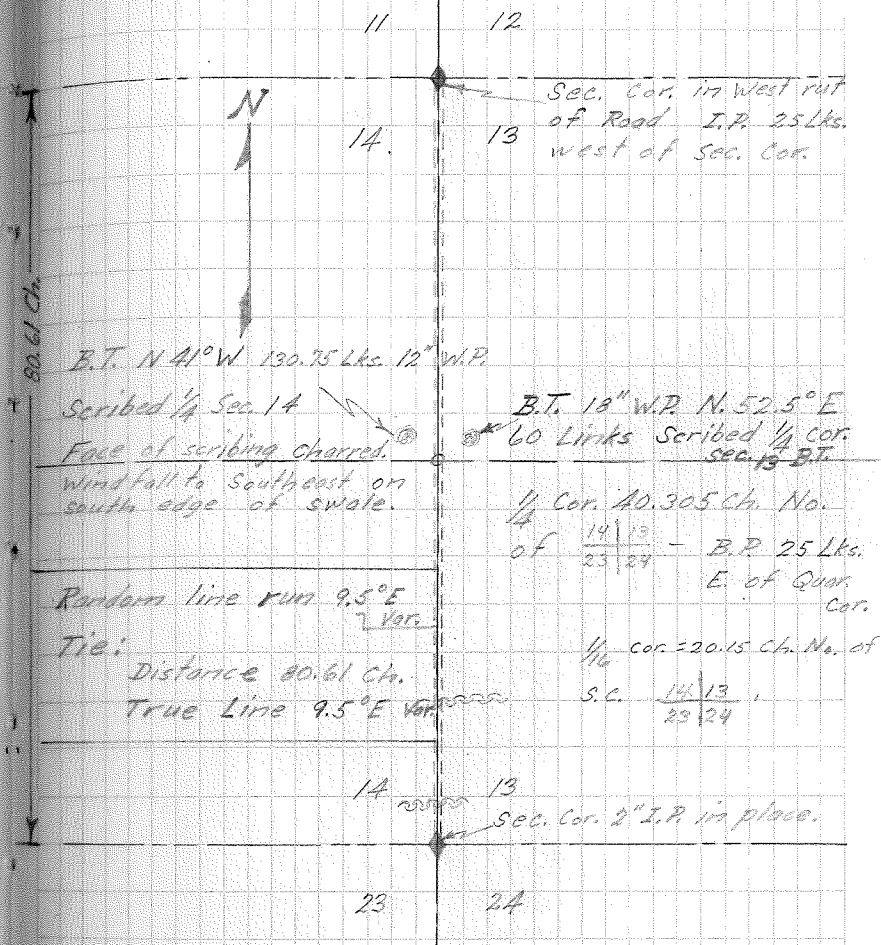 11
12
Sec. Cor. in West rut
of Road I.P. 25 Lks.
west of Sec. Cor.
N
14.
13
80.61 Ch.
B.T. N 41° W 130.75 Lks. 12" W.P.
Scribed 1/4 Sec. 14
Face of scribing charred.
windfall to Southeast on
south edge of swale.
B.T. 18" W.P. N. 52.5° E
60 Links Scribed 1/4 cor.
sec. 13 B.T.
1/4 Cor. 40.305 Ch. No.
of 14|13 - B.P. 25 Lks.
23|24
E. of Quar.
Cor.
Random line run 9.5° E
Var.
Tie:
Distance 80.61 Ch.
True Line 9.5° E Var.
1/16 cor. = 20.15 Ch. No. of
S.C. 14|13 .
23|24
14
13
Sec. Cor. 2" I.P. in place.
23
24